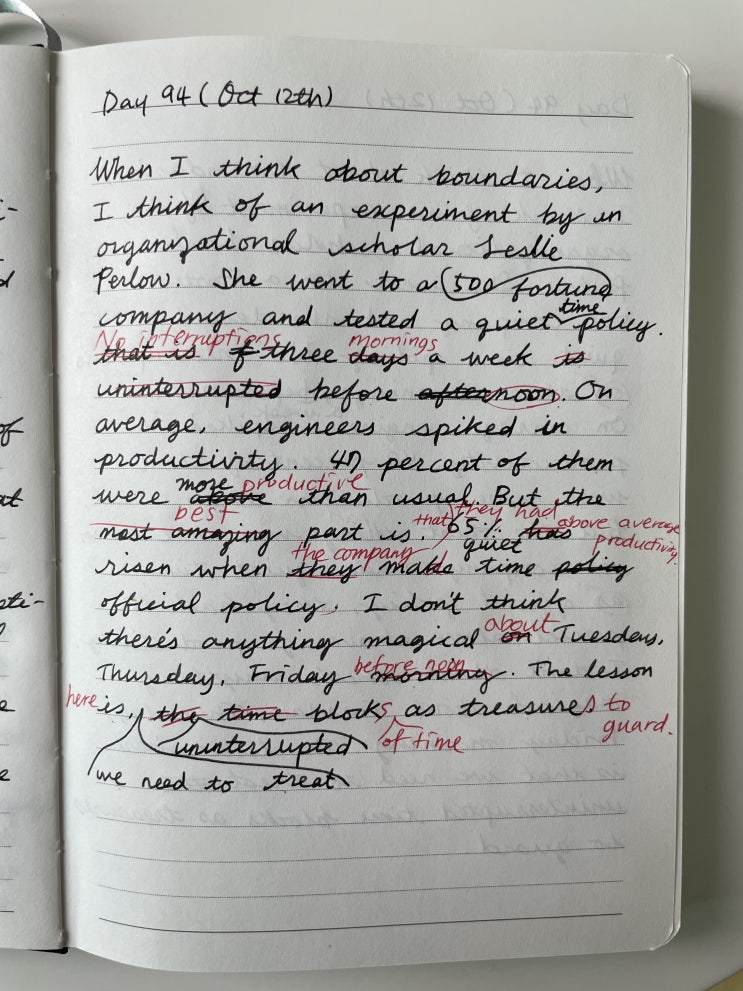 Day 94 ( Oct 12th)
When I think about boundaries,
I think of an experiment by an
organizational scholar Leslie
Perlow. She went to a 500 fortune
time
company and tested a quiet policy.
No interruptions mornings
that is three days a week is
uninterrupted before afternoon. On
average, engineers spiked in
productivity. 47 percent of them
more productive
were above than usual. But the
best that they had above average
most amazing part is. 65% has productivity.
the company quiet
risen when they made time policy
official policy. I don't think
about
there's anything magical on Tuesday,
Thursday, Friday morning. The lesson
before noon
here is, the time blocks as treasures to
guard.
uninterrupted of time
we need to treat